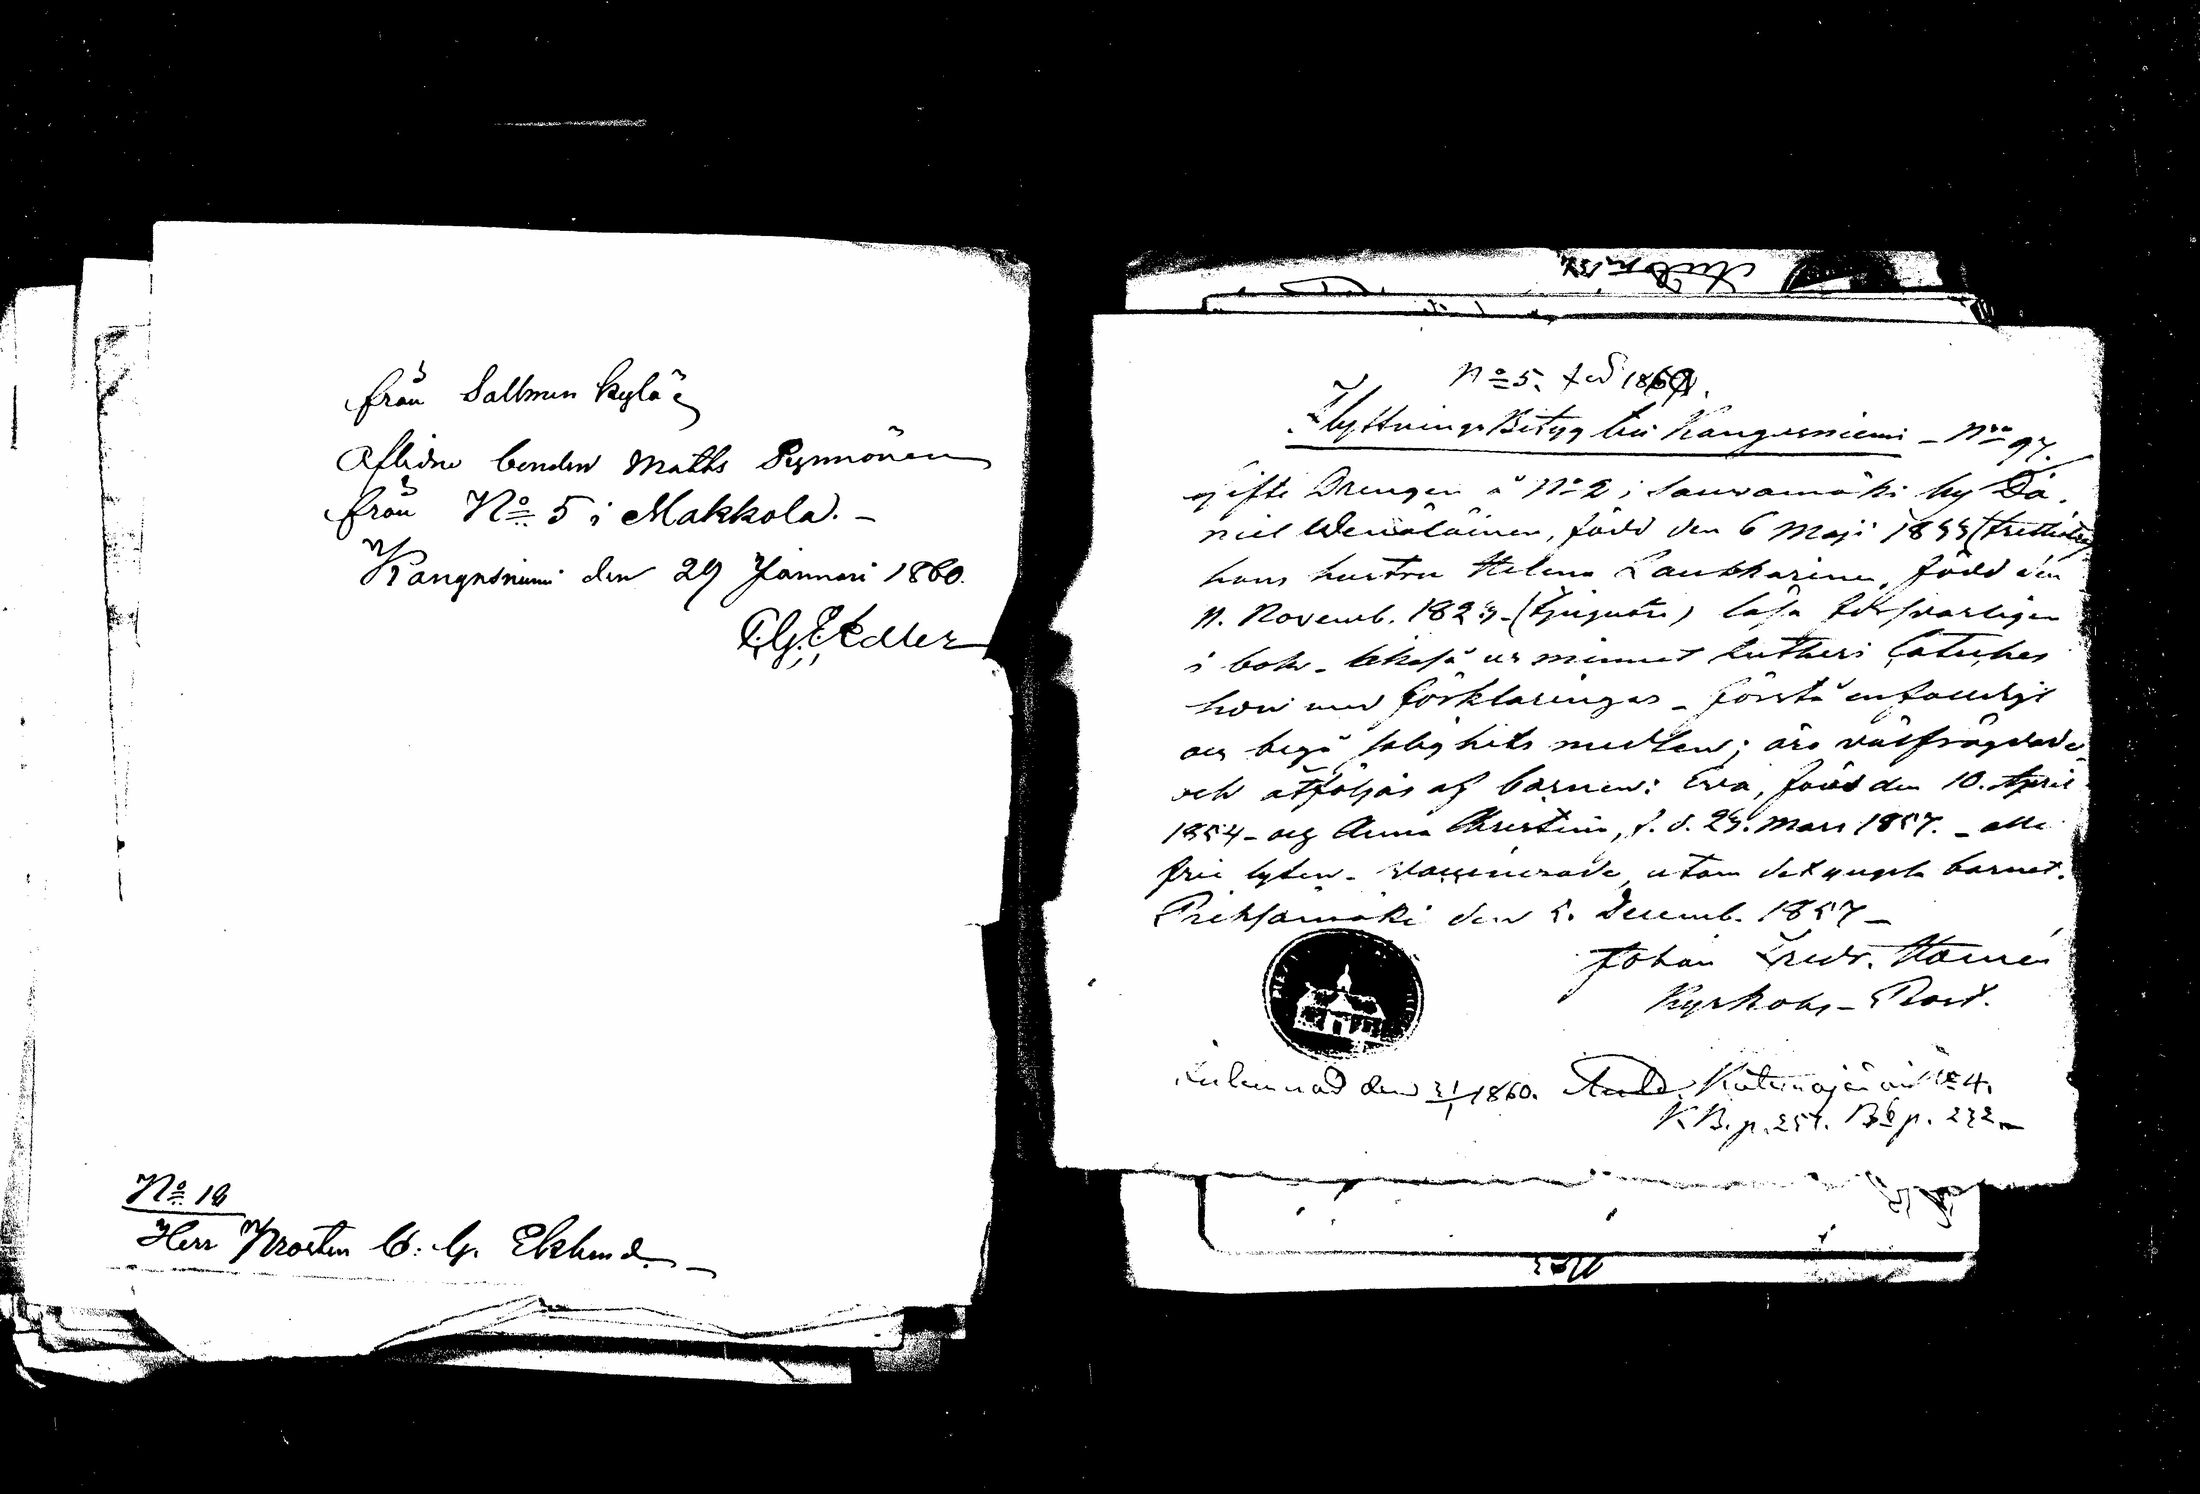 från Salmen kylä
Aflidne bonden Matts Pynnönen
från No 5 i Makkola. -
Kangasniemi den 29 Januari 1860.
Edler
No 18
Herr Prosten C. G. Eklund. -
No 5. 1860.
Flyttnings Betyg till Kangasniemi - No 97.
gifte Drengen å No 2 i Sauvamäki by Da-
niel Wenäläinen, född den 6 Maji 1833 (trettiotre)
hans hustru Helena Laukkarinen, född den
11. Novemb. 1823 - (tjugutre) läsa försvarligen
i bok - likaså ur minnet Lutheri Catches
hon med förklaringar - förstå enfaldigt
och begå salighets medlen; äro välfrägdade
och åtföljas af barnen: Eva, född den 10. April
1854 - och Anna Christina, f. d. 23. Mars 1857. - alla
fria lyten - vaccinerade, utom det yngsta barnet.
Pieksämäki den 5. Decemb. 1857 -
Johan Fredr.
Kyrkoh. - Past.
Inlemnad den 31/1 1860. No 4.
K.B. p. 257. p. 232 -